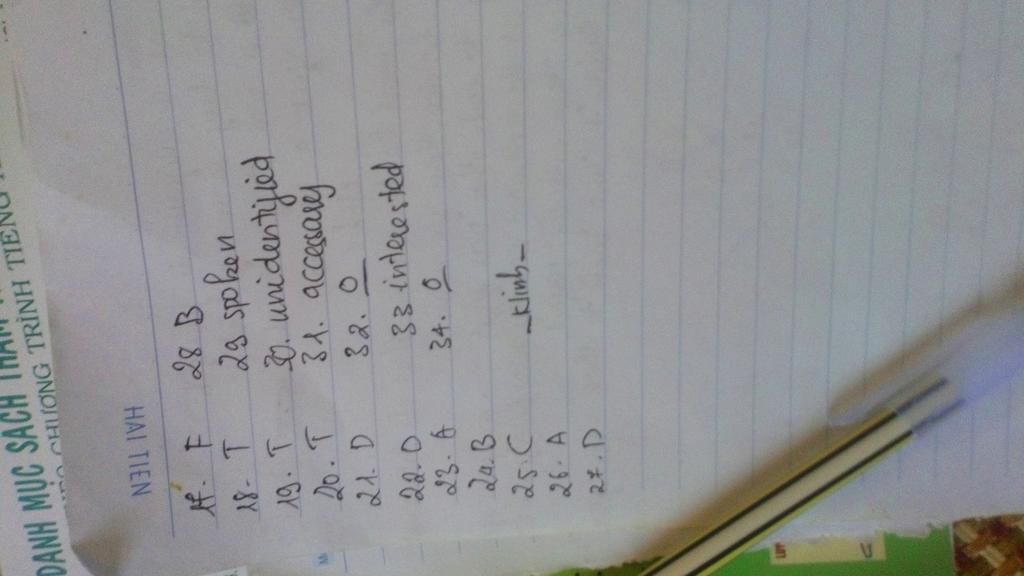 DANH MỤC SÁCH THAM
CHƯƠNG TRÌNH TIẾNG
HAI TIEN
17. F 28 B
18. T 29 spoken
19. T 30. unidentified
20. T 31. accessary
21. D 32. O
22. D 33 interested
23. A 34. O
24. B
25. C - Klinh -
26. A
27. D